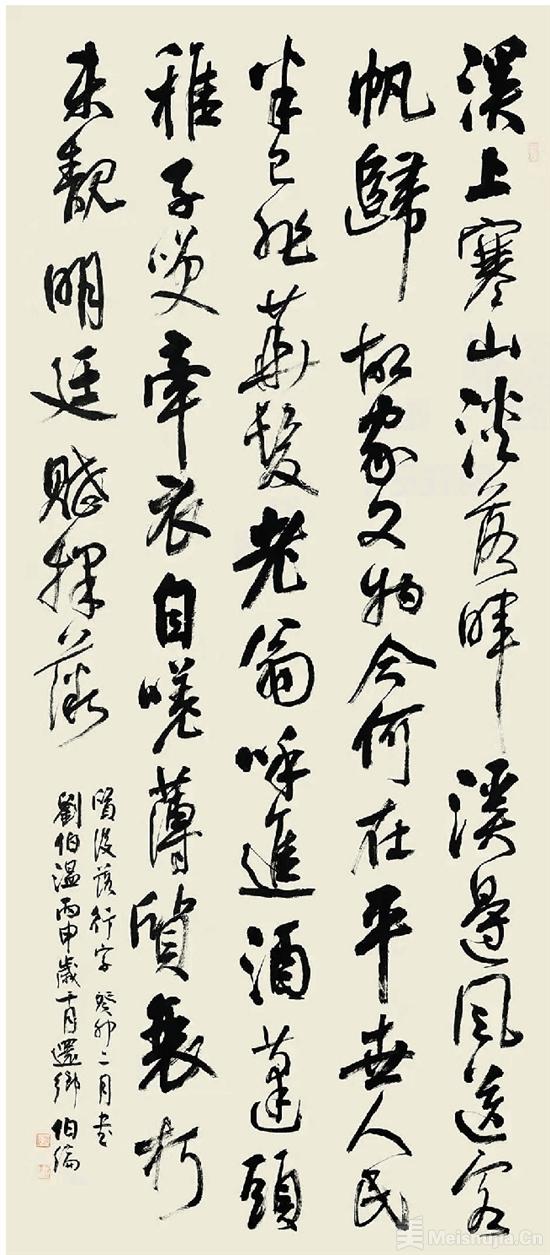 溪上寒山淡落暉溪邊風送客
帆歸故家文物今何在平世人民
半已非華髮老翁呼進酒蓬頭
稚子笑牽衣自嗟薄質衰朽
未覩明廷賦採薇
質後落行字 癸卯二月書
劉伯溫丙申歲十月還鄉 伯
美 Meishujia.Cn